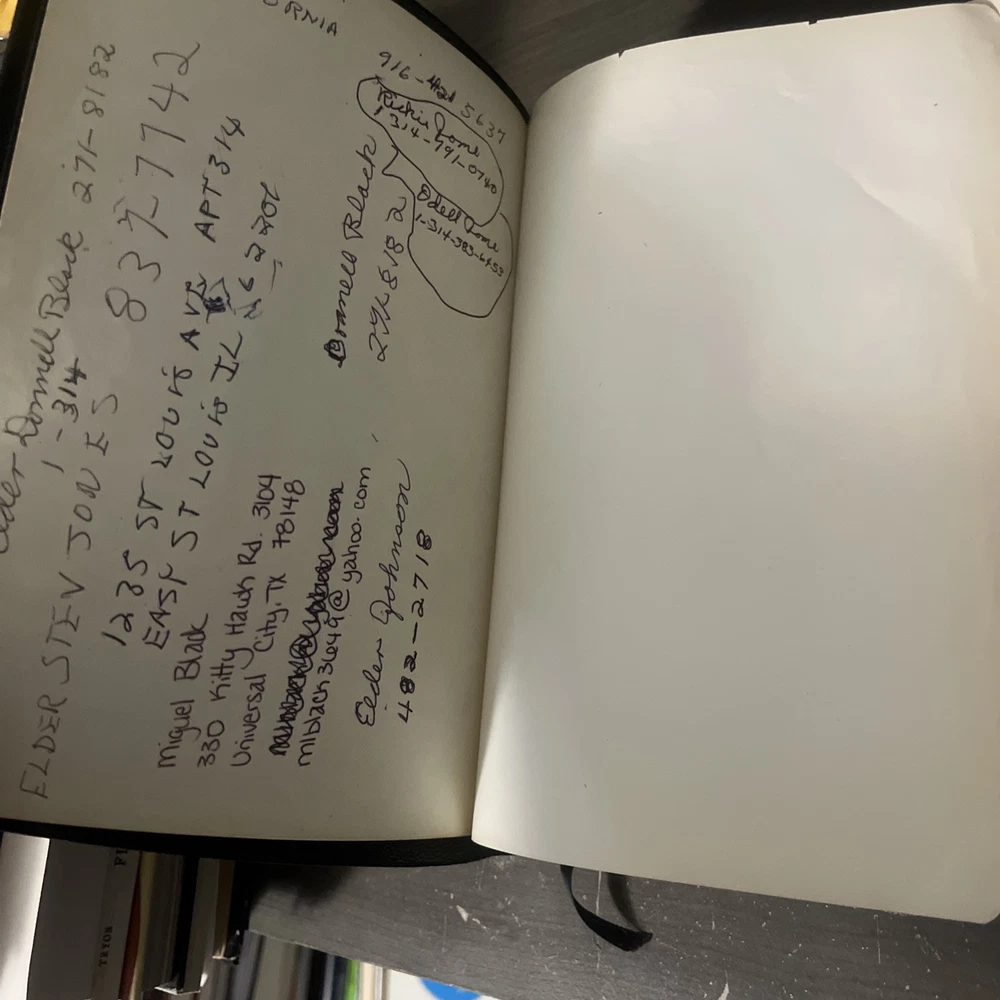 ORNIA
Elder Donnell Black 271-8182
1-314
ELDER STEV JONES 837-7742
1235 ST LOUIS AVE APT 314
EAST ST LOUIS IL
Miguel Black
330 Kitty Hawk Rd. 3104
Universal City, TX 78148
mlblack3649@yahoo.com
Donnell Black
271-8182
Elder Johnson
482-2718
916- 5637
Rickie Jone
1314-791-0740
Odell Jone
1-314-383-6453
TRYON